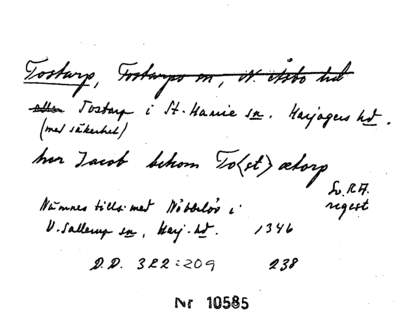 Tostarp, Tostarps sn, N. Åsbo hd
eller Tostarp i St. Harrie sn. Harjagers hd.
(med säkerhet)
her Jacob bekom To<st>ætorp
Sv. R.A.
regest
Nämnes tills. med Nöbbelöv i
V. Sallerup sn, Harj. hd. 1346
D.D. 322:209 238
Nr 10585